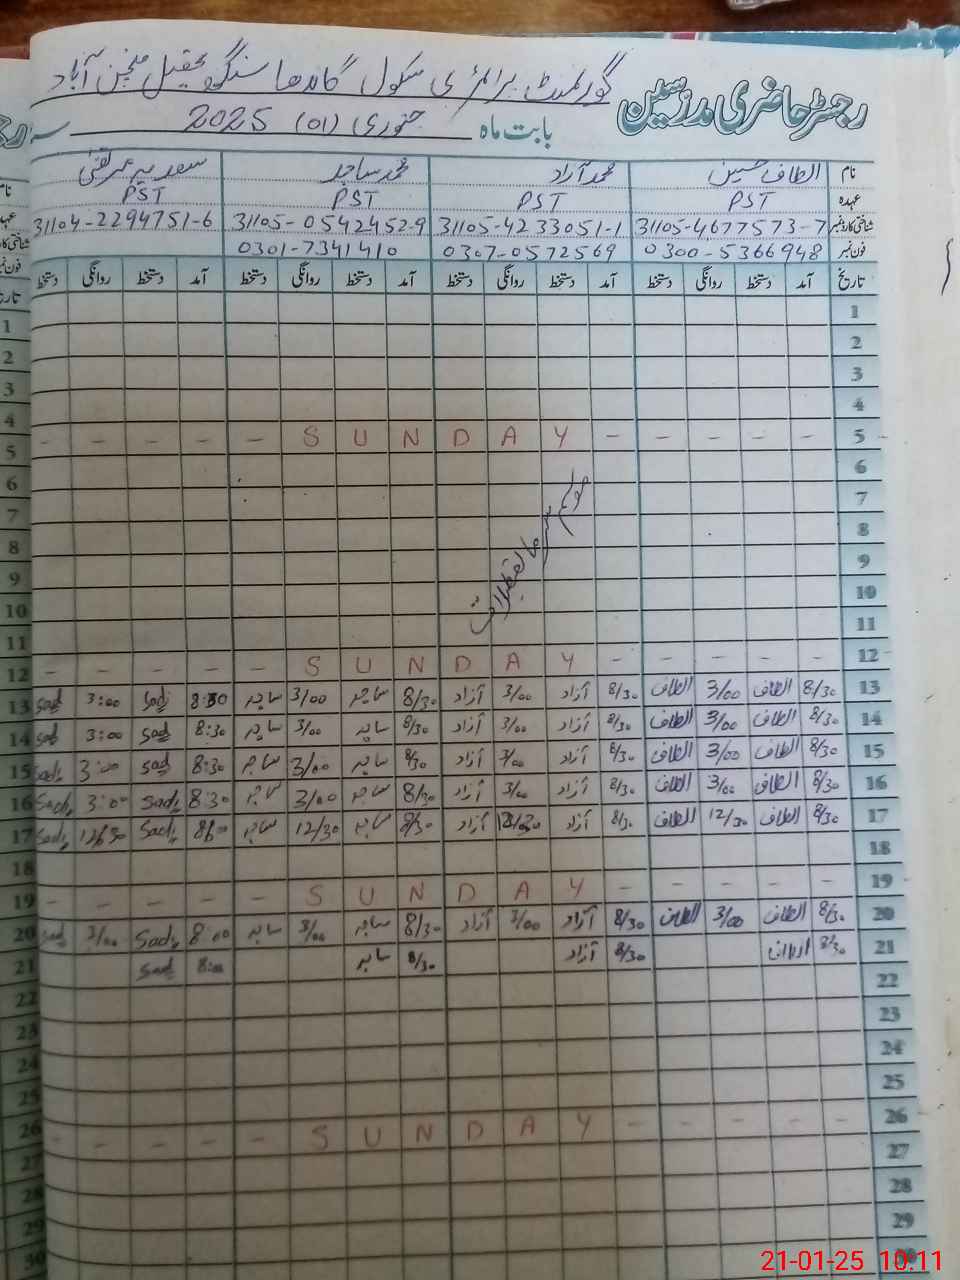 رجسٹر حاضری مدرسین گورنمنٹ پرائمری سکول گاندھا سنگھ تحصیل منچن آباد
بابت ماہ جنوری (01) 2025
نام الطاف حسین محمد آزاد محمد ساجد
عہدہ PST PST PST PST
شناختی کارڈ نمبر 31105-4677573-7 31105-4233051-1 31105-0542452-9 31104-2294751-6
فون نمبر 0300-5366948 0307-0572569 0301-7341410
تاریخ آمد دستخط روانگی دستخط آمد دستخط روانگی دستخط آمد دستخط روانگی دستخط آمد دستخط روانگی دستخط
1
2
3
4
5 - - - - - S U N D A Y - - - - -
6
7
8
موسم سرما تعطیلات
9
10
11
12 - - - - - S U N D A Y - - - -
13 8/30 الطاف 3/00 الطاف 8/30 آزاد 3/00 آزاد 8/30 ساجد 3/00 ساجد 8:30 Sadi 3:00 Sad
14 8/30 الطاف 3/00 الطاف 8/30 آزاد 3/00 آزاد 8/30 ساجد 3/00 ساجد 8:30 Sad 3:00 Sad
15 8/30 الطاف 3/00 الطاف 8/30 آزاد 3/00 آزاد 8/30 ساجد 3/00 ساجد 8:30 Sad 3:00 Sad
16 8/30 الطاف 3/00 الطاف 8/30 آزاد 3/00 آزاد 8/30 ساجد 3/00 ساجد 8:30 Sadi 3:00 Sadi
17 8/30 الطاف 12/30 الطاف 8/30 آزاد آزاد 8/30 ساجد 12/30 ساجد Sadi Sadi
18
19 - - - - - S U N D A Y - - - - -
20 8/30 الطاف 3/00 الطاف 8/30 آزاد 3/00 آزاد 8/30 ساجد 3/00 ساجد 8:00 Sadi 3/00 Sad
21 8/30 8/30 آزاد 8/30 ساجد 8:00 Sad
22
23
24
25
26 - - - - - S U N D A Y - - - - -
27
28
29
30
21-01-25 10:11